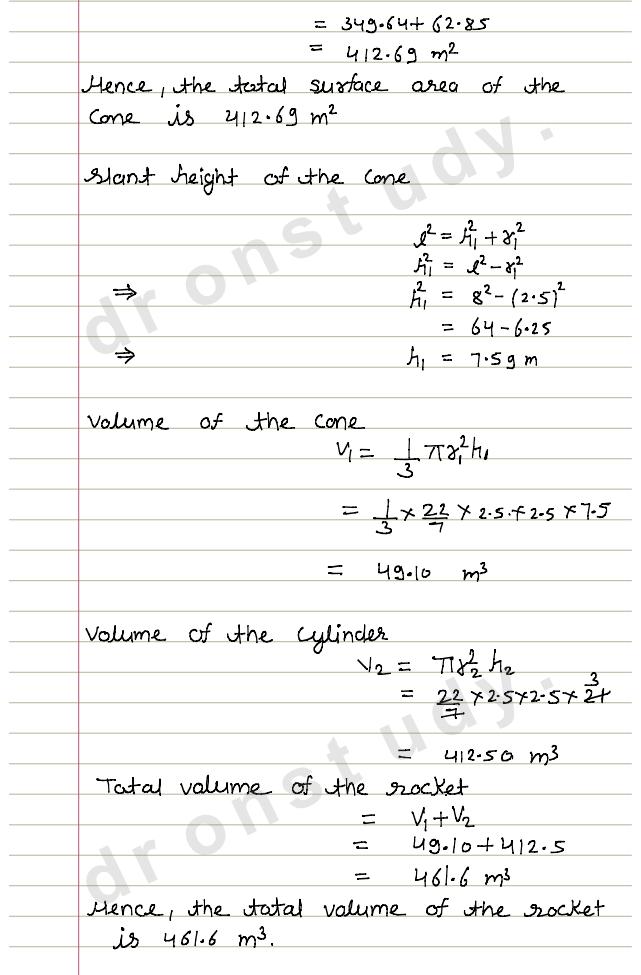 = 349.64+ 62.85
= 412.69 m²
Hence, the total surface area of the
cone is 412.69 m²
Slant height of the cone
l² = h₁² + r₁²
h₁² = l² - r₁²
⇒ h₁² = 8² - (2.5)²
= 64 - 6.25
⇒ h₁ = 7.59 m
Volume of the cone
V₁ = 1/3 πr₁²h₁
= 1/3 × 22/7 × 2.5 × 2.5 × 7.5
= 49.10 m³
Volume of the cylinder
V₂ = πr₂² h₂
= 22/7 × 2.5 × 2.5 × 21 3
= 412.50 m³
Total volume of the rocket
= V₁ + V₂
= 49.10 + 412.5
= 461.6 m³
Hence, the total volume of the rocket
is 461.6 m³.
dronstudy.
dronstudy.